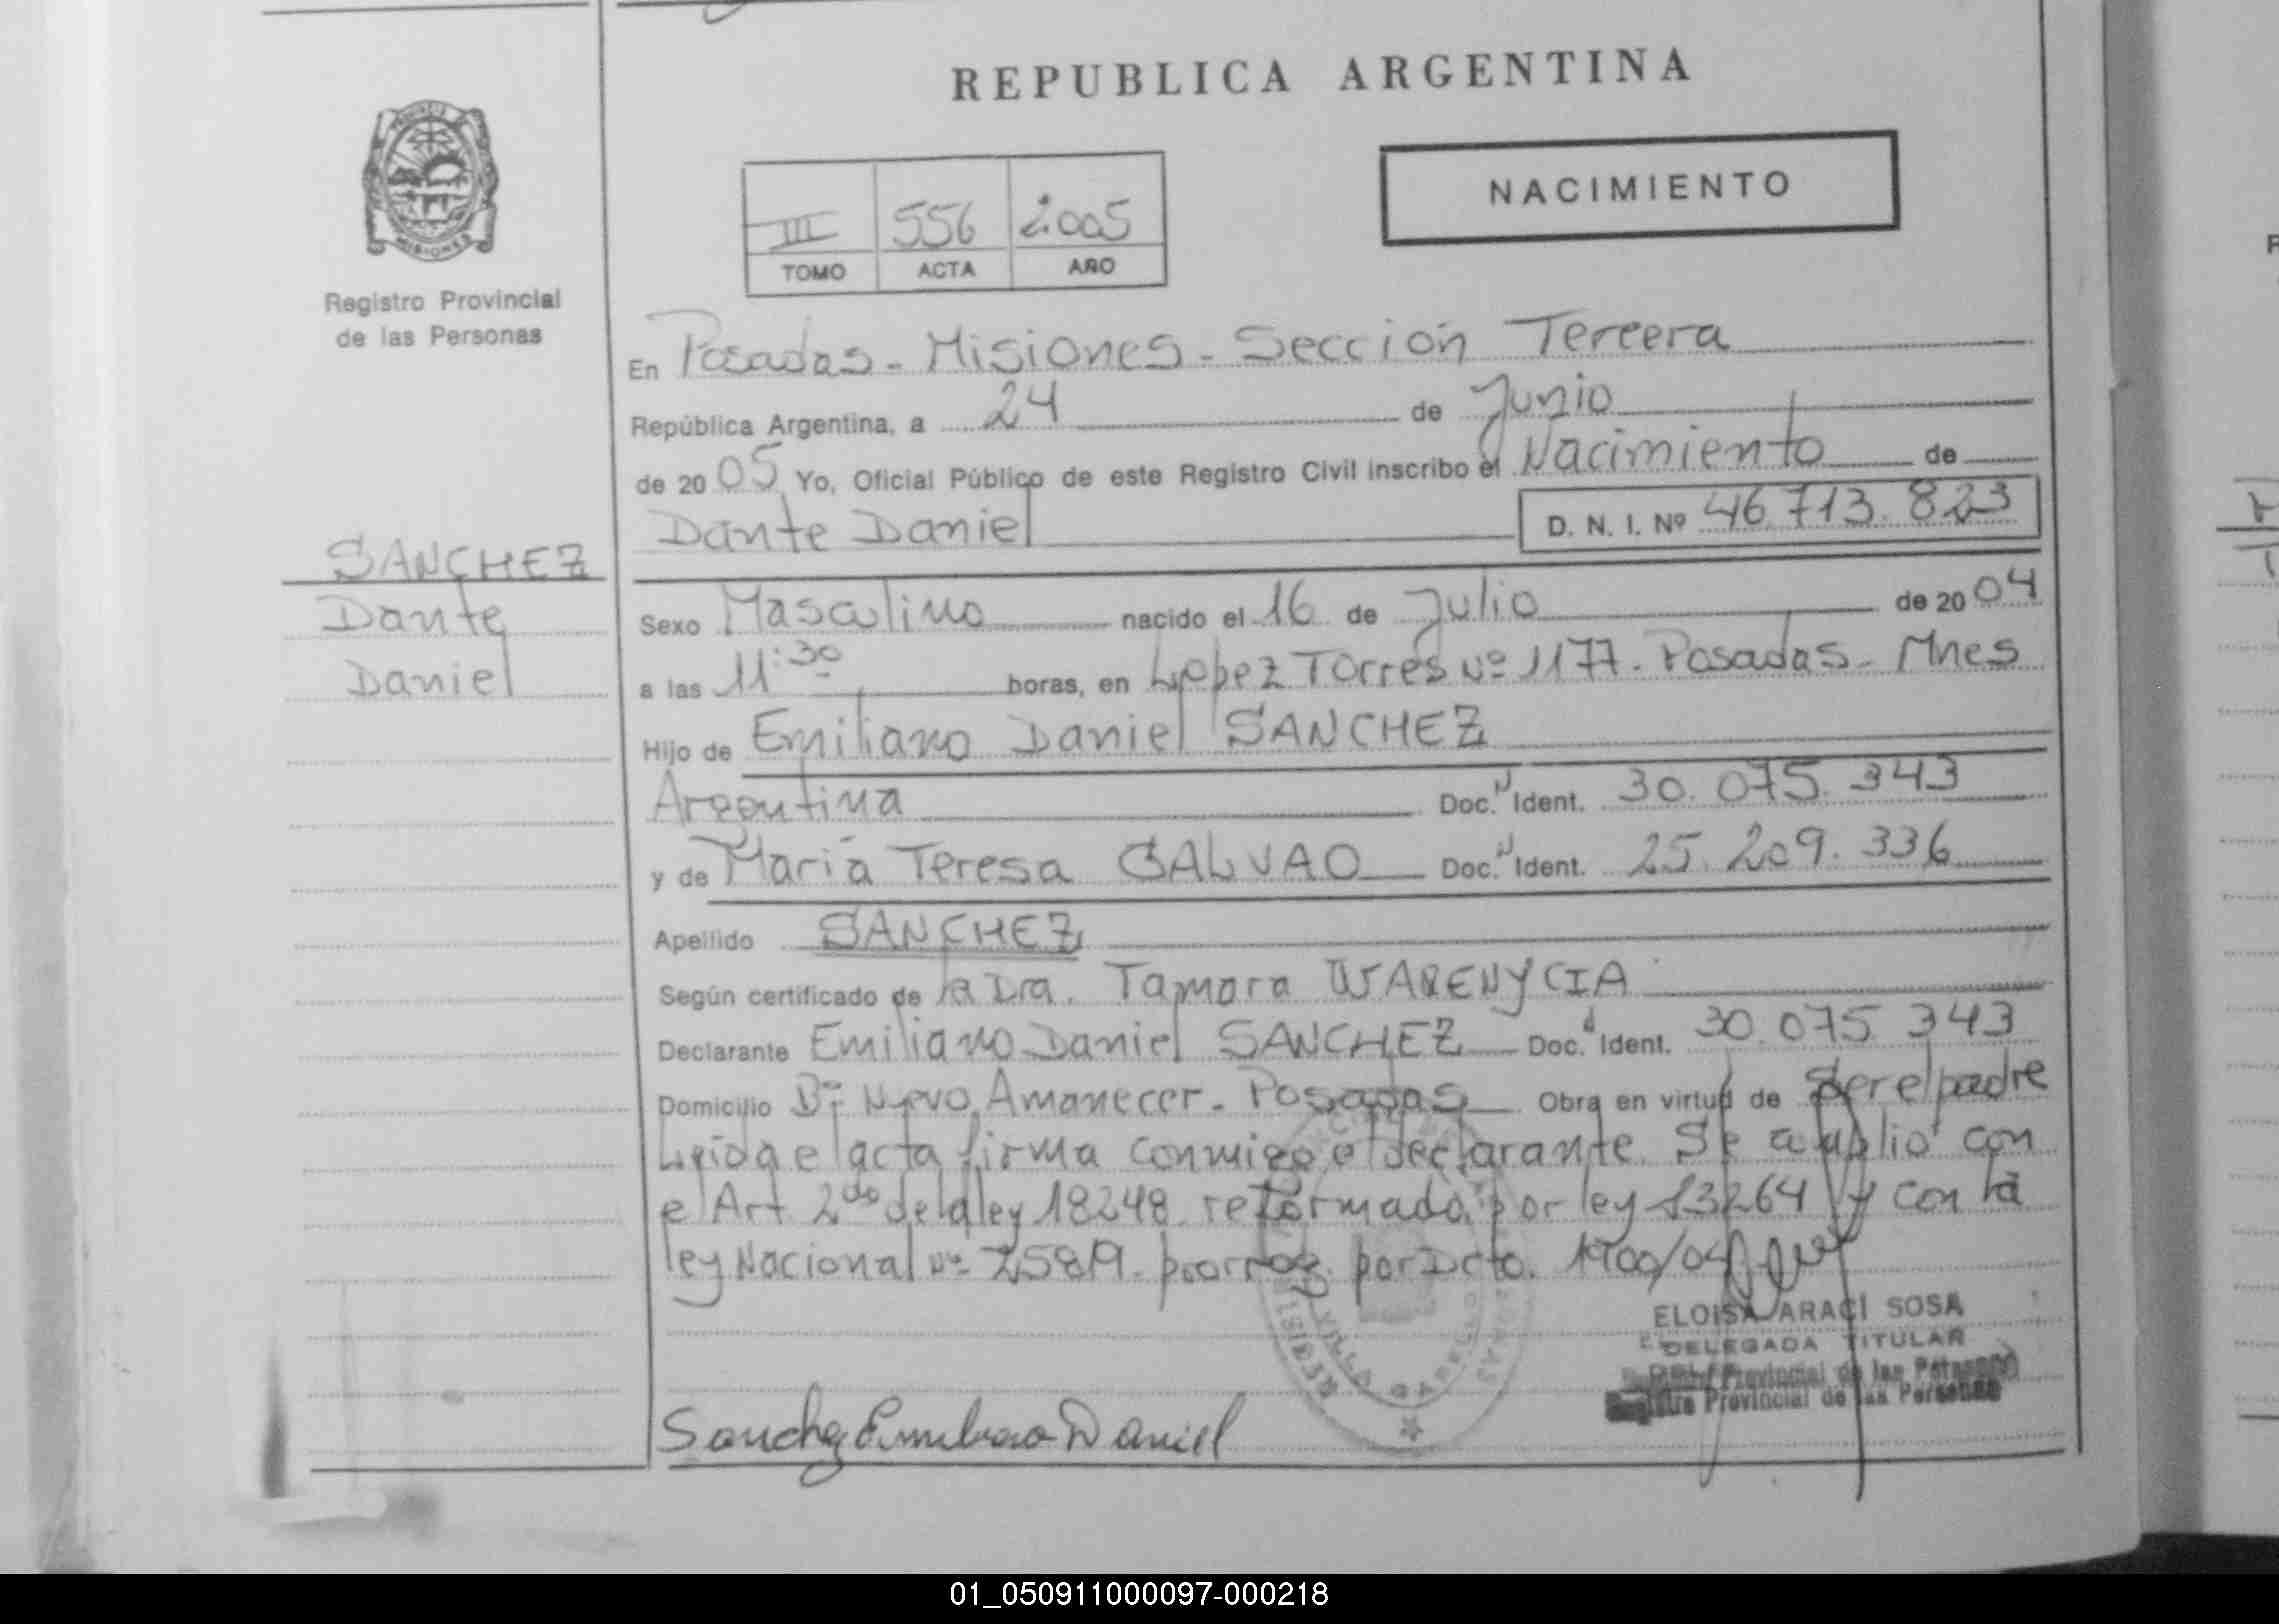 REPUBLICA ARGENTINA
PROVINCIA DE MISIONES
Registro Provincial
de las Personas
NACIMIENTO
III 556 2.005
TOMO ACTA AÑO
En Posadas - Misiones - Sección Tercera
República Argentina, a 24 de Junio
de 2005 Yo, Oficial Público de este Registro Civil inscribo el Nacimiento de
Dante Daniel D. N. I. Nº 46.713.823
SANCHEZ
Dante
Daniel
Sexo Masculino nacido el 16 de Julio de 2004
a las 11:30 horas, en Lopez Torres Nº 1177. Posadas - Mnes
Hijo de Emiliano Daniel SANCHEZ
Argentina Doc. Ident. 30.075.343
y de María Teresa GALVAO Doc. Ident. 25.209.336
Apellido SANCHEZ
Según certificado de la Dra. Tamara WARENYCIA
Declarante Emiliano Daniel SANCHEZ Doc. Ident. 30.075.343
Domicilio Bº Nuevo Amanecer - Posadas Obra en virtud de ser el padre
Leida el acta firma conmigo el declarante. Se amplió con
el Art 2do de la ley 18248 reformada por ley 13264 y con la
ley Nacional Nº 25819. prorrog. por Dcto. 1700/04
ELOISA ARACI SOSA
DELEGADA TITULAR
Registro Provincial de las Personas
Sanchez Emiliano Daniel
01_050911000097-000218